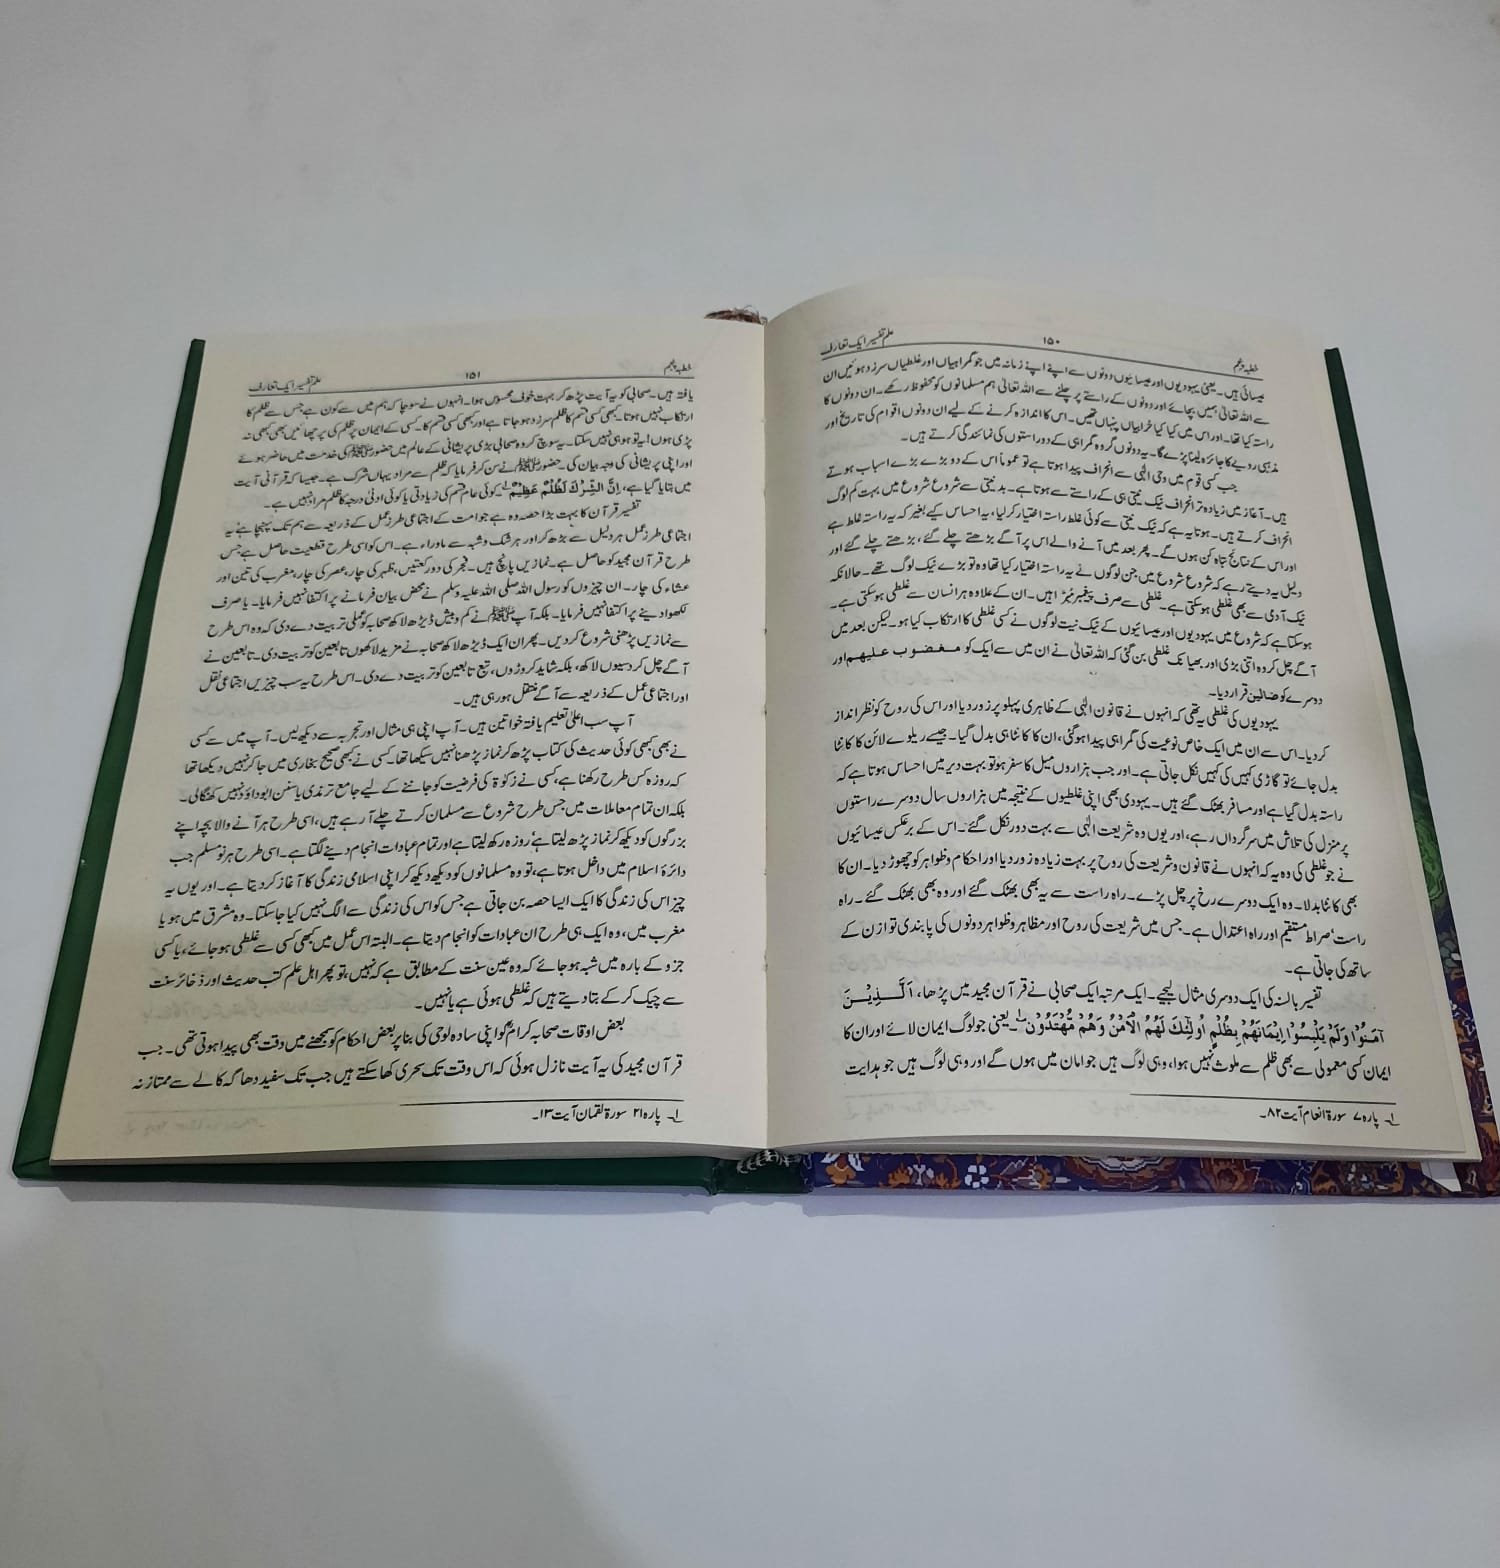 خطبہ پنجم ۱۵۰ علم تفسیر ایک تعارف
عیسائی ہیں۔ یعنی یہودیوں اور عیسائیوں دونوں سے اپنے اپنے زمانہ میں جو گمراہیاں اور غلطیاں سرزد ہوئیں ان
سے اللہ تعالیٰ ہمیں بچائے اور دونوں کے راستے پر چلنے سے اللہ تعالیٰ ہم مسلمانوں کو محفوظ رکھے۔ ان دونوں کا
راستہ کیا تھا۔ اور اس میں کیا کیا خرابیاں پنہاں تھیں۔ اس کا اندازہ کرنے کے لیے ان دونوں اقوام کی تاریخ اور
مذہبی رویے کا جائزہ لینا پڑے گا۔ یہ دونوں گروہ گمراہی کے دو راستوں کی نمائندگی کرتے ہیں۔
جب کسی قوم میں وحی الٰہی سے انحراف پیدا ہوتا ہے تو عموماً اس کے دو بڑے بڑے اسباب ہوتے
ہیں۔ آغاز میں زیادہ تر انحراف نیک نیتی ہی کے راستے سے ہوتا ہے۔ بدنیتی سے شروع شروع میں بہت کم لوگ
انحراف کرتے ہیں۔ ہوتا یہ ہے کہ نیک نیتی سے کوئی غلط راستہ اختیار کر لیا، یہ احساس کیے بغیر کہ یہ راستہ غلط ہے
اور اس کے نتائج تباہ کن ہوں گے۔ پھر بعد میں آنے والے اس پر آگے بڑھتے چلے گئے، بڑھتے چلے گئے اور
دلیل یہ دیتے رہے کہ شروع شروع میں جن لوگوں نے یہ راستہ اختیار کیا تھا وہ تو بڑے نیک لوگ تھے۔ حالانکہ
نیک آدمی سے بھی غلطی ہو سکتی ہے۔ غلطی سے صرف پیغمبر مُبرّا ہیں۔ ان کے علاوہ ہر انسان سے غلطی ہو سکتی ہے۔
ہو سکتا ہے کہ شروع میں یہودیوں اور عیسائیوں کے نیک نیت لوگوں نے کسی غلطی کا ارتکاب کیا ہو۔ لیکن بعد میں
آگے چل کر وہ اتنی بڑی اور بھیانک غلطی بن گئی کہ اللہ تعالیٰ نے ان میں سے ایک کو مغضوب علیھم اور
دوسرے کو ضالین قرار دیا۔
یہودیوں کی غلطی یہ تھی کہ انہوں نے قانون الٰہی کے ظاہری پہلو پر زور دیا اور اس کی روح کو نظر انداز
کر دیا۔ اس سے ان میں ایک خاص نوعیت کی گمراہی پیدا ہو گئی، ان کا کانٹا ہی بدل گیا۔ جیسے ریلوے لائن کا کانٹا
بدل جائے تو گاڑی کہیں کی کہیں نکل جاتی ہے۔ اور جب ہزاروں میل کا سفر ہو تو بہت دیر میں احساس ہوتا ہے کہ
راستہ بدل گیا ہے اور مسافر بھٹک گئے ہیں۔ یہودی بھی اپنی غلطیوں کے نتیجہ میں ہزاروں سال دوسرے راستوں
پر منزل کی تلاش میں سرگرداں رہے، اور یوں وہ شریعت الٰہی سے بہت دور نکل گئے۔ اس کے برعکس عیسائیوں
نے جو غلطی کی وہ یہ کہ انہوں نے قانون و شریعت کی روح پر بہت زیادہ زور دیا اور احکام و ظواہر کو چھوڑ دیا۔ ان کا
بھی کانٹا بدلا۔ وہ ایک دوسرے رخ پر چل پڑے۔ راہ راست سے یہ بھی بھٹک گئے اور وہ بھی بھٹک گئے۔ راہ
راست، صراط مستقیم اور راہ اعتدال ہے۔ جس میں شریعت کی روح اور مظاہر وظواہر دونوں کی پابندی توازن کے
ساتھ کی جاتی ہے۔
تفسیر بالسنہ کی ایک دوسری مثال لیجیے۔ ایک مرتبہ ایک صحابی نے قرآن مجید میں پڑھا، اَلَّذِیْنَ
آمَنُوْا وَلَمْ یَلْبِسُوْا اِیْمَانَھُمْ بِظُلْمٍ اُولٰٓئِکَ لَھُمُ الْاَمْنُ وَھُمْ مُّھْتَدُوْنَ ؂۱۔ یعنی جو لوگ ایمان لائے اور ان کا
ایمان کسی معمولی سے بھی ظلم سے ملوث نہیں ہوا، وہی لوگ ہیں جو امان میں ہوں گے اور وہی لوگ ہیں جو ہدایت
۱۔ پارہ ۷ سورۃ انعام آیت ۸۲۔
خطبہ پنجم ۱۵۱ علم تفسیر ایک تعارف
یافتہ ہیں۔ صحابی کو یہ آیت پڑھ کر بہت خوف محسوس ہوا۔ انہوں نے سوچا کہ ہم میں سے کون ہے جس سے ظلم کا
ارتکاب نہیں ہوتا۔ کبھی کسی قسم کا ظلم سرزد ہو جاتا ہے اور کبھی کسی قسم کا۔ کسی کے ایمان پر ظلم کی پرچھائیں بھی کبھی نہ
پڑی ہوں ایسا تو ہو ہی نہیں سکتا۔ یہ سوچ کر وہ صحابی بڑی پریشانی کے عالم میں حضور ﷺ کی خدمت میں حاضر ہوئے
اور اپنی پریشانی کی وجہ بیان کی۔ حضور ﷺ نے سن کر فرمایا کہ ظلم سے مراد یہاں شرک ہے۔ جیسا کہ قرآنی آیت
میں بتایا گیا ہے، اِنَّ الشِّرْکَ لَظُلْمٌ عَظِیْمٌ ؂۱۔ کوئی عام قسم کی زیادتی یا کوئی ادنیٰ درجہ کا ظلم مراد نہیں ہے۔
تفسیر قرآن کا بہت بڑا حصہ وہ ہے جو امت کے اجتماعی طرز عمل کے ذریعہ سے ہم تک پہنچا ہے یہ
اجتماعی طرز عمل ہر دلیل سے بڑھ کر اور ہر شک و شبہ سے ماوراء ہے۔ اس کو اسی طرح قطعیت حاصل ہے جس
طرح قرآن مجید کو حاصل ہے۔ نمازیں پانچ ہیں۔ فجر کی دو رکعتیں، ظہر کی چار، عصر کی چار، مغرب کی تین اور
عشاء کی چار۔ ان چیزوں کو رسول اللہ صلی اللہ علیہ وسلم نے محض بیان فرمانے پر اکتفا نہیں فرمایا۔ یا صرف
لکھوا دینے پر اکتفا نہیں فرمایا۔ بلکہ آپ ﷺ نے کم و بیش ڈیڑھ لاکھ صحابہ کو عملی تربیت دے دی کہ وہ اس طرح
سے نمازیں پڑھنی شروع کر دیں۔ پھر ان ایک ڈیڑھ لاکھ صحابہ نے مزید لاکھوں تابعین کو تربیت دی۔ تابعین نے
آگے چل کر دسیوں لاکھ، بلکہ شاید کروڑوں، تبع تابعین کو تربیت دے دی۔ اس طرح یہ سب چیزیں اجتماعی نقل
اور اجتماعی عمل کے ذریعہ سے آگے منتقل ہو رہی ہیں۔
آپ سب اعلیٰ تعلیم یافتہ خواتین ہیں۔ آپ اپنی ہی مثال اور تجربہ سے دیکھ لیں۔ آپ میں سے کسی
نے بھی کبھی کوئی حدیث کی کتاب پڑھ کر نماز پڑھنا نہیں سیکھا تھا۔ کسی نے کبھی صحیح بخاری میں جا کر نہیں دیکھا تھا
کہ روزہ کس طرح رکھنا ہے، کسی نے زکوٰۃ کی فرضیت کو جاننے کے لیے جامع ترمذی یا سنن ابو داؤد نہیں کھنگالی۔
بلکہ ان تمام معاملات میں جس طرح شروع سے مسلمان کرتے چلے آ رہے ہیں، اسی طرح ہر آنے والا بچہ اپنے
بزرگوں کو دیکھ کر نماز پڑھ لیتا ہے روزہ رکھ لیتا ہے اور تمام عبادات انجام دینے لگتا ہے۔ اسی طرح ہر نو مسلم جب
دائرۂ اسلام میں داخل ہوتا ہے، تو وہ مسلمانوں کو دیکھ دیکھ کر اپنی اسلامی زندگی کا آغاز کر دیتا ہے۔ اور یوں یہ
چیز اس کی زندگی کا ایک ایسا حصہ بن جاتی ہے جس کو اس کی زندگی سے الگ نہیں کیا جا سکتا۔ وہ مشرق میں ہو یا
مغرب میں، وہ ایک ہی طرح ان عبادات کو انجام دیتا ہے۔ البتہ اس عمل میں کبھی کسی سے غلطی ہو جائے، یا کسی
جزو کے بارہ میں شبہ ہو جائے کہ وہ عین سنت کے مطابق ہے کہ نہیں، تو پھر اہل علم کتب حدیث اور ذخائر سنت
سے چیک کر کے بتا دیتے ہیں کہ غلطی ہوئی ہے یا نہیں۔
بعض اوقات صحابہ کرامؓ کو اپنی سادہ لوحی کی بنا پر بعض احکام کو سمجھنے میں دقت بھی پیدا ہوتی تھی۔ جب
قرآن مجید کی یہ آیت نازل ہوئی کہ اس وقت تک سحری کھا سکتے ہیں جب تک سفید دھاگہ کالے سے ممتاز نہ
۱۔ پارہ ۲۱ سورۃ لقمان آیت ۱۳۔